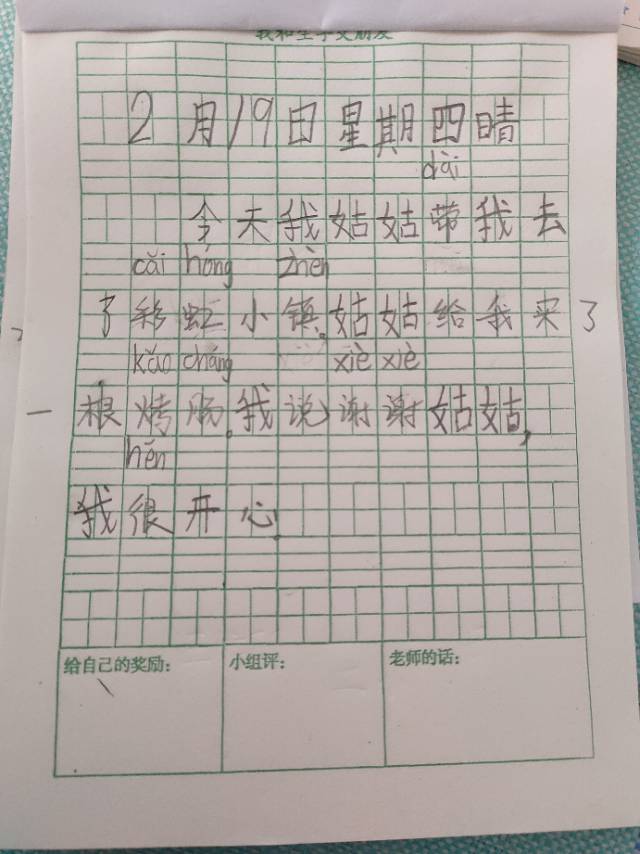 我和生字交朋友
2月19日星期四晴
dài
今天我姑姑带我去
cǎi hóng zhèn
了彩虹小镇。姑姑给我买了
kǎo cháng xiè xiè
一根烤肠。我说谢谢姑姑,
hěn
我很开心.
给自己的奖励: 小组评: 老师的话: